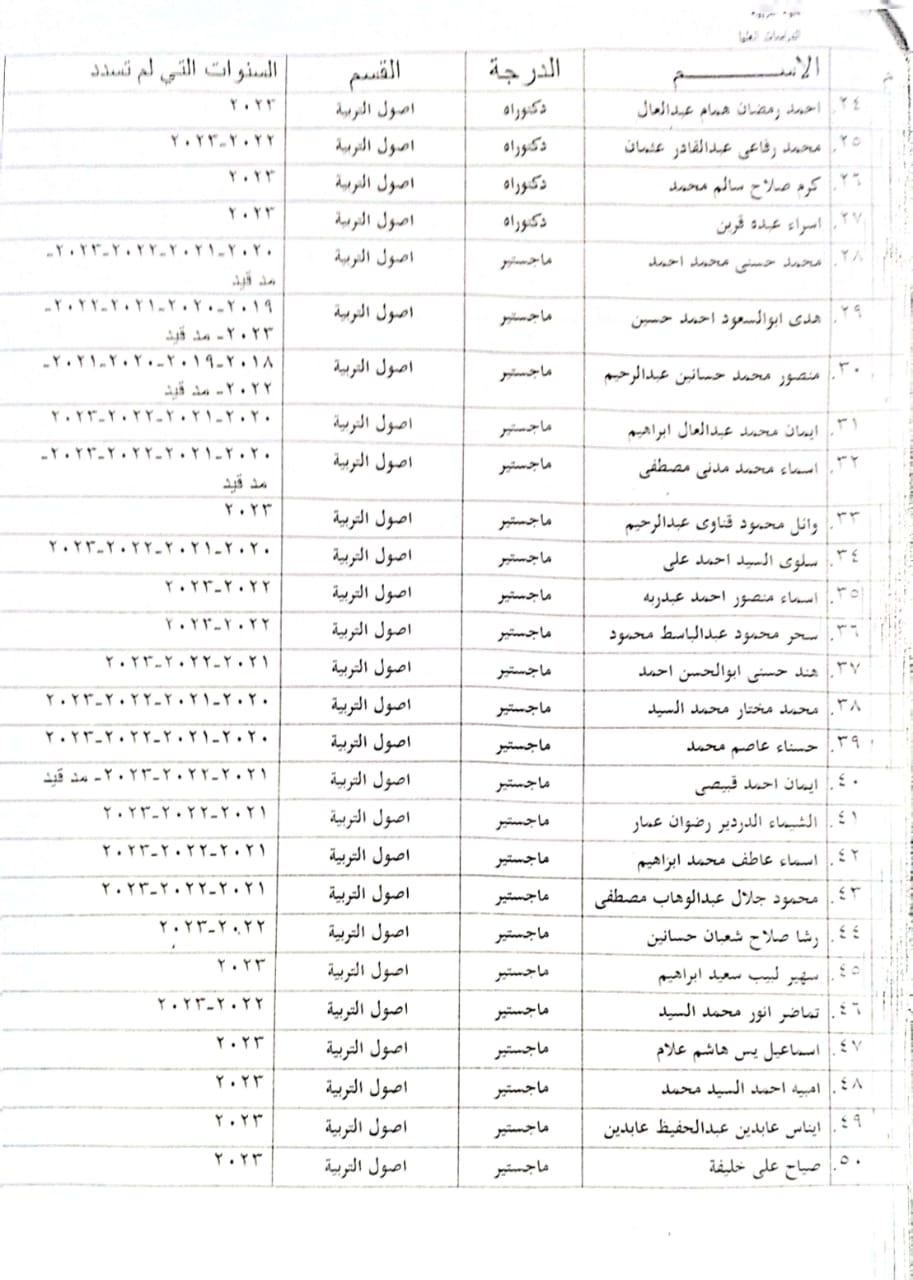 الدراسات العليا
م الاســـــــــم الدرجة القسم السنوات التي لم تسدد
٢٤. احمد رمضان همام عبدالعال دكتوراه اصول التربية ٢٠٢٣
٢٥. محمد رفاعى عبدالقادر عثمان دكتوراه اصول التربية ٢٠٢٢-٢٠٢٣
٢٦. كرم صلاح سالم محمد دكتوراه اصول التربية ٢٠٢٣
٢٧. اسراء عبده قرين دكتوراه اصول التربية ٢٠٢٣
٢٨. محمد حسنى محمد احمد ماجستير اصول التربية ٢٠٢٠-٢٠٢١-٢٠٢٢-٢٠٢٣-
مد قيد
٢٩. هدى ابوالسعود احمد حسين ماجستير اصول التربية ٢٠١٩-٢٠٢٠-٢٠٢١-٢٠٢٢-
٢٠٢٣- مد قيد
٣٠. منصور محمد حسانين عبدالرحيم ماجستير اصول التربية ٢٠١٨-٢٠١٩-٢٠٢٠-٢٠٢١-
٢٠٢٢- مد قيد
٣١. ايمان محمد عبدالعال ابراهيم ماجستير اصول التربية ٢٠٢٠-٢٠٢١-٢٠٢٢-٢٠٢٣
٣٢. اسماء محمد مدنى مصطفى ماجستير اصول التربية ٢٠٢٠-٢٠٢١-٢٠٢٢-٢٠٢٣-
مد قيد
٣٣. وائل محمود قناوى عبدالرحيم ماجستير اصول التربية ٢٠٢٣
٣٤. سلوى السيد احمد على ماجستير اصول التربية ٢٠٢٠-٢٠٢١-٢٠٢٢-٢٠٢٣
٣٥. اسماء منصور احمد عبدربه ماجستير اصول التربية ٢٠٢٢-٢٠٢٣
٣٦. سحر محمود عبدالباسط محمود ماجستير اصول التربية ٢٠٢٢-٢٠٢٣
٣٧. هند حسنى ابوالحسن احمد ماجستير اصول التربية ٢٠٢١-٢٠٢٢-٢٠٢٣
٣٨. محمد مختار محمد السيد ماجستير اصول التربية ٢٠٢٠-٢٠٢١-٢٠٢٢-٢٠٢٣
٣٩. حسناء عاصم محمد ماجستير اصول التربية ٢٠٢٠-٢٠٢١-٢٠٢٢-٢٠٢٣
٤٠. ايمان احمد قبيصى ماجستير اصول التربية ٢٠٢١-٢٠٢٢-٢٠٢٣- مد قيد
٤١. الشيماء الدردير رضوان عمار ماجستير اصول التربية ٢٠٢١-٢٠٢٢-٢٠٢٣
٤٢. اسماء عاطف محمد ابراهيم ماجستير اصول التربية ٢٠٢١-٢٠٢٢-٢٠٢٣
٤٣. محمود جلال عبدالوهاب مصطفى ماجستير اصول التربية ٢٠٢١-٢٠٢٢-٢٠٢٣
٤٤. رشا صلاح شعبان حسانين ماجستير اصول التربية ٢٠٢٢-٢٠٢٣
٤٥. سهير لبيب سعيد ابراهيم ماجستير اصول التربية ٢٠٢٣
٤٦. تماضر انور محمد السيد ماجستير اصول التربية ٢٠٢٢-٢٠٢٣
٤٧. اسماعيل يس هاشم علام ماجستير اصول التربية ٢٠٢٣
٤٨. امبيه احمد السيد محمد ماجستير اصول التربية ٢٠٢٣
٤٩. ايناس عابدين عبدالحفيظ عابدين ماجستير اصول التربية ٢٠٢٣
٥٠. صباح على خليفة ماجستير اصول التربية ٢٠٢٣